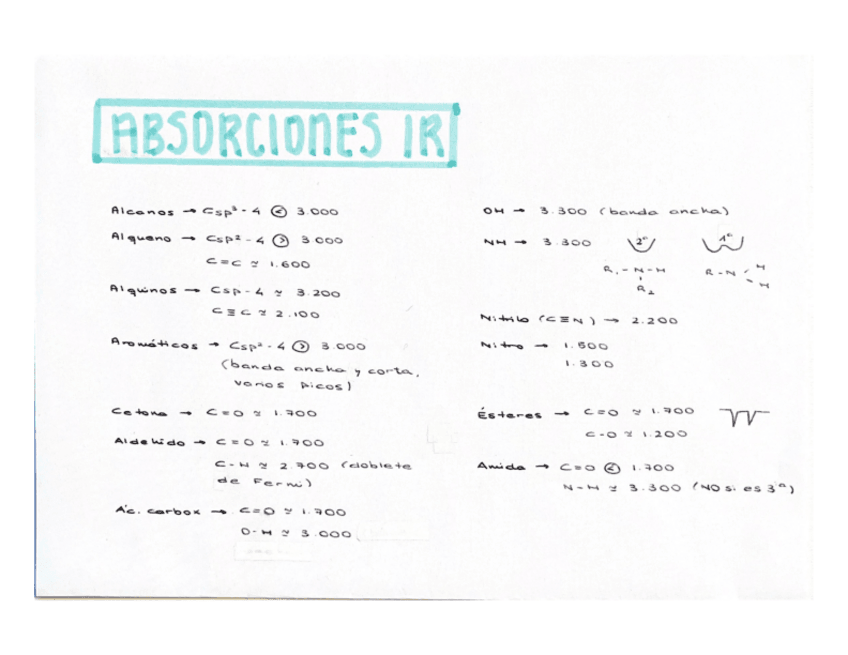 ABSORCIONES IR
Alcanos → Csp³-H < 3.000
Alqueno → Csp²-H > 3.000
C=C ≃ 1.600
Alquinos → Csp-H ≃ 3.200
C≡C ≃ 2.100
Aromáticos → Csp²-H > 3.000
(banda ancha y corta,
varios picos)
Cetona → C=O ≃ 1.700
Aldehido → C=O ≃ 1.700
C-H ≃ 2.700 (doblete
de Fermi)
Ác. carbox → C=O ≃ 1.700
O-H ≃ 3.000
OH → 3.300 (banda ancha)
NH → 3.300 2º 1º
R₁-N-H R-N H
R₂ H
Nitrilo (C≡N) → 2.200
Nitro → 1.500
1.300
Ésteres → C=O ≃ 1.700
C-O ≃ 1.200
Amida → C=O < 1.700
N-H ≃ 3.300 (NO si es 3ª)